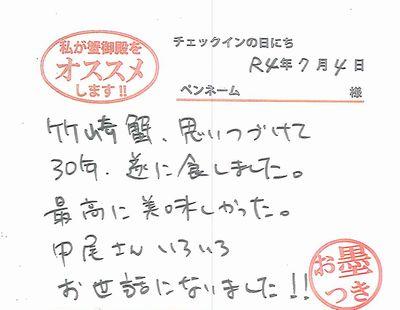 私が蟹御殿を
オススメ
します!!
チェックインの日にち
R4年7月4日
ペンネーム 様
竹崎蟹、思いつづけて
30年、遂に食しました。
最高に美味しかった。
甲尾さんいろいろ
お世話になりました!!
お墨
つき